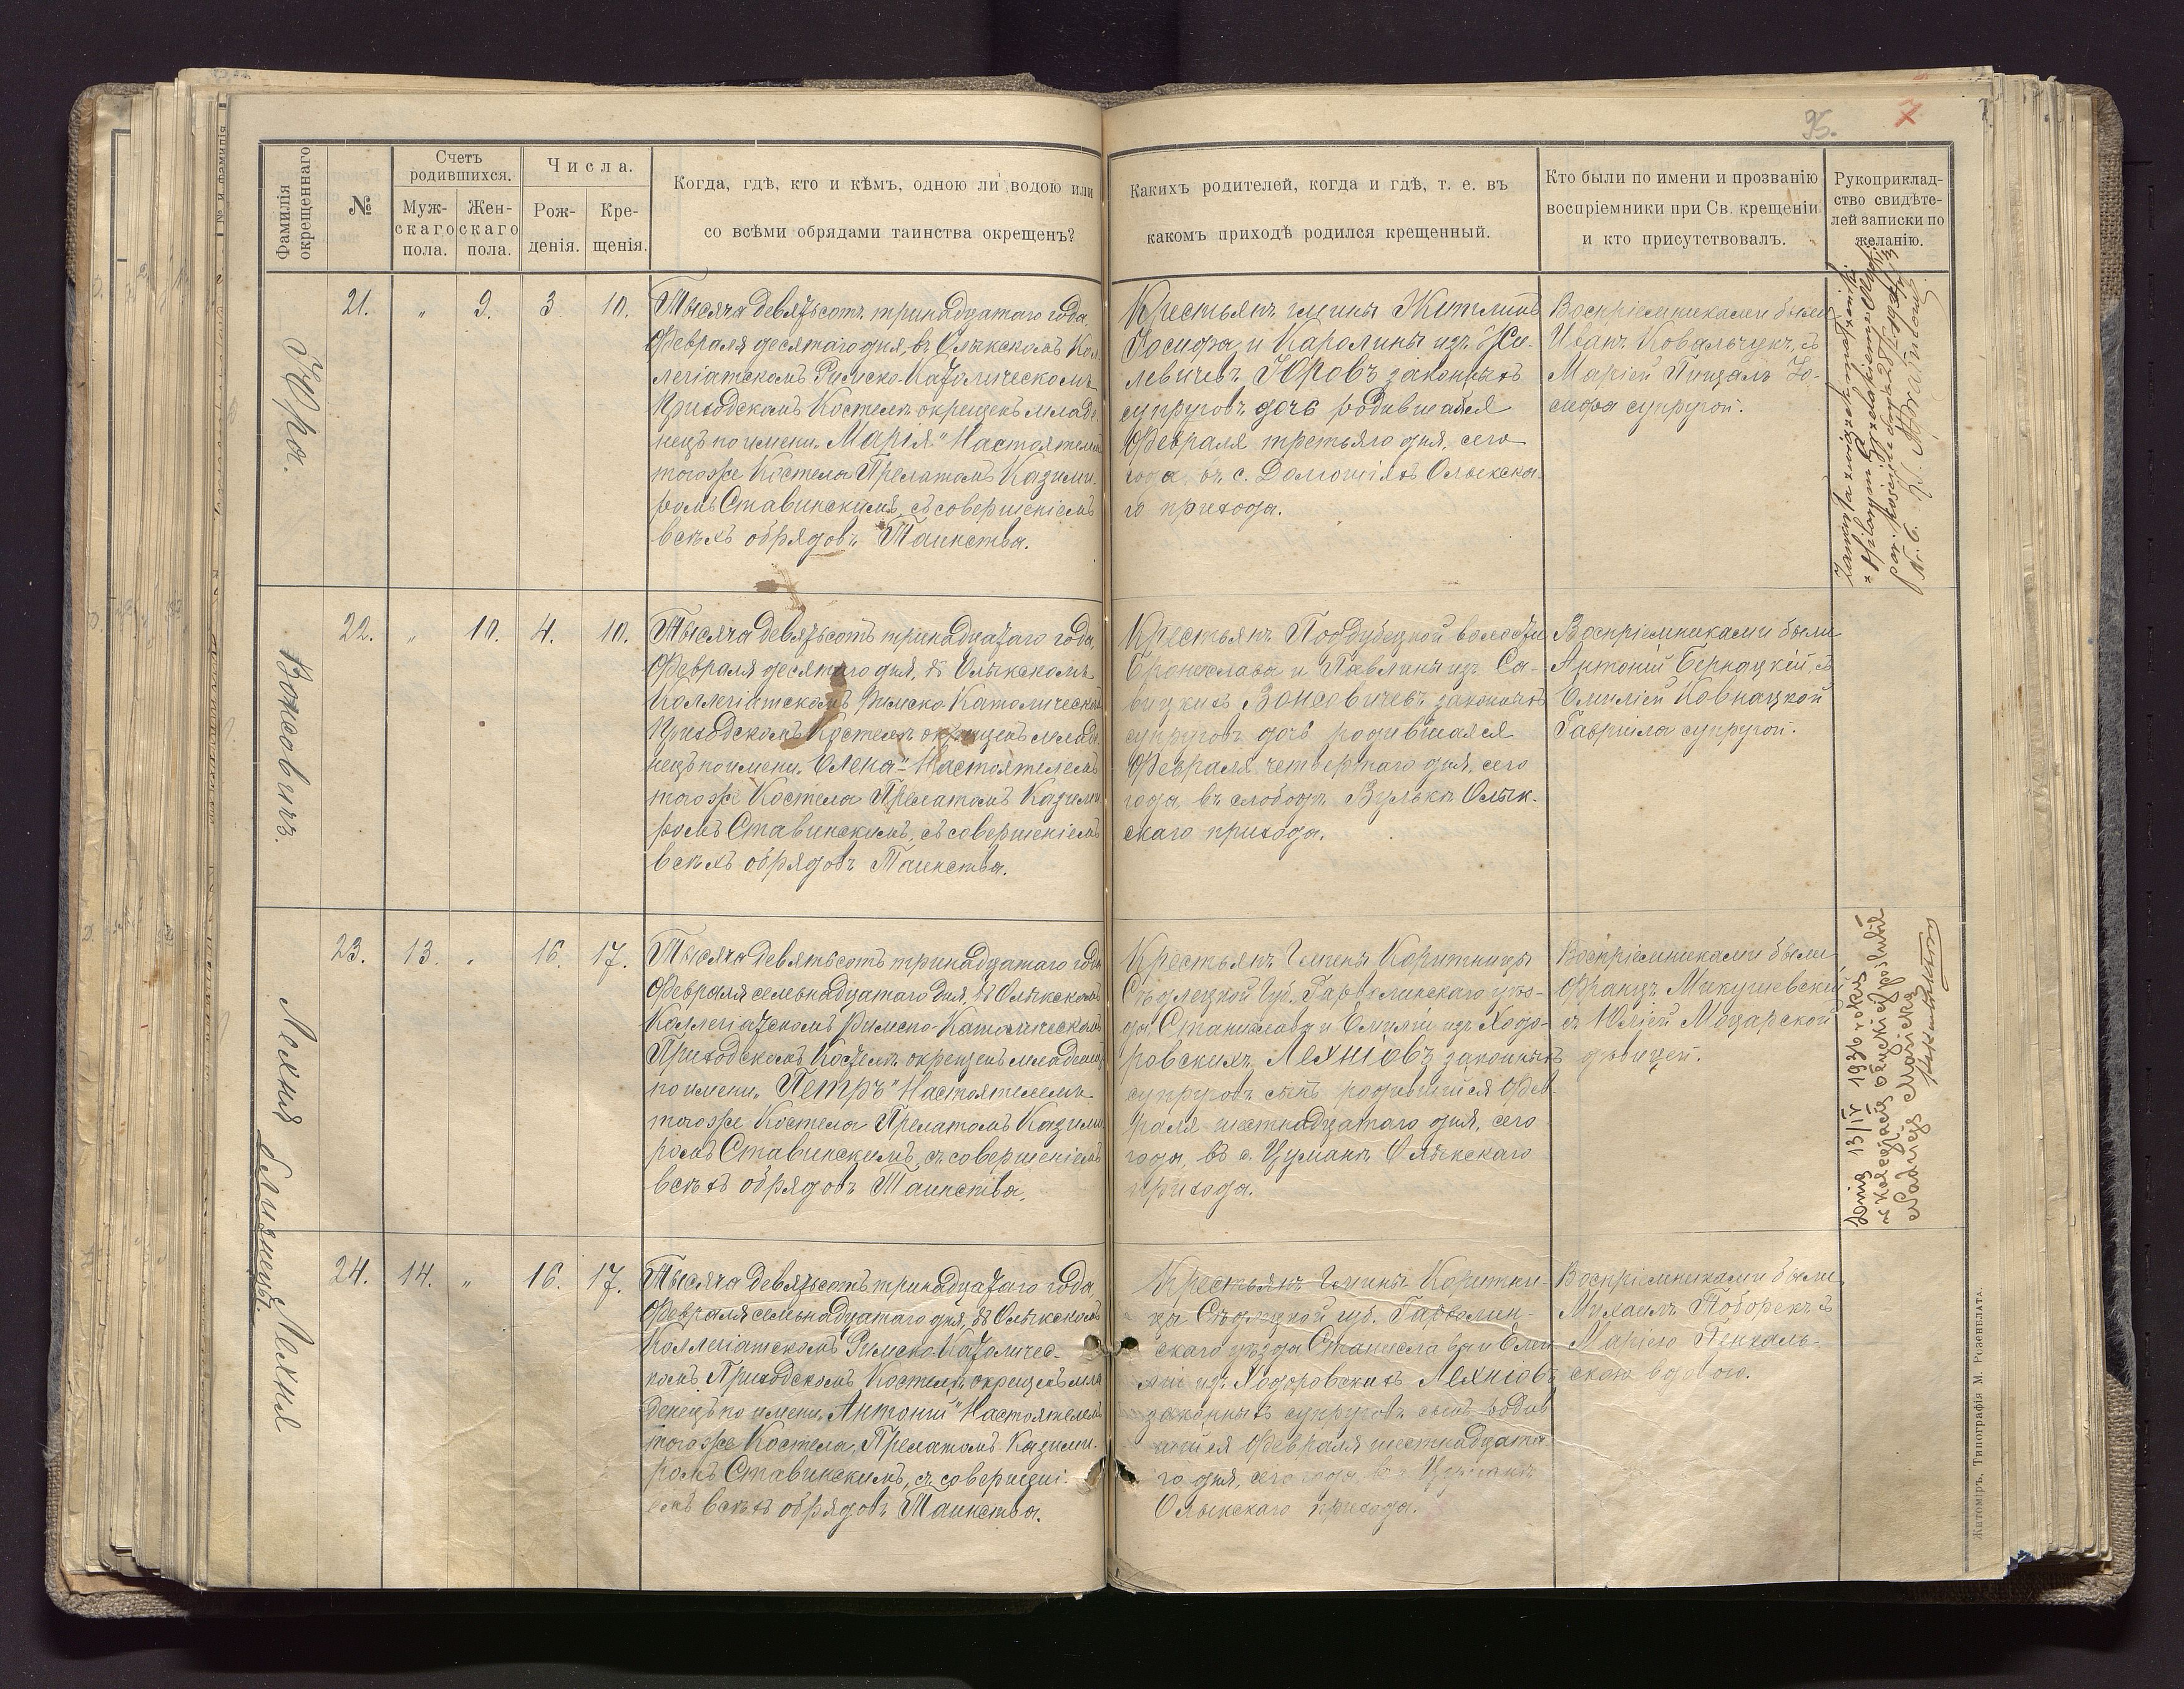 95. 7
Фамилія окрещеннаго
№
Счетъ родившихся.
Муж-скаго пола.
Жен-скаго пола.
Числа.
Рож-денія.
Кре-щенія.
Когда, гдѣ, кто и кѣмъ, одною ли водою или
со всѣми обрядами таинства окрещенъ?
Какихъ родителей, когда и гдѣ, т. е. въ
какомъ приходѣ родился крещенный.
Кто были по имени и прозванію
воспріемники при Св. крещеніи
и кто присутствовалъ.
Рукоприклад-
ство свидѣте-
лей записки по
желанію.
Юра.
21. „ 9. 3 10.
Тысяча девятьсотъ тринадцатаго года,
Февраля десятаго дня, въ Олыкскомъ Кол-
легіатскомъ Римско-Католическомъ
Приходскомъ Костелѣ окрещенъ младе-
нецъ по имени „Марія" Настоятелемъ
тогоже Костела Прелатомъ Казими-
ромъ Ставинскимъ, съ совершеніемъ
всѣхъ обрядовъ Таинства.
Крестьянъ гмины
Іосифа и Каролины изъ
левичевъ Юровъ законныхъ
супруговъ дочь родившаяся
Февраля третьяго дня, сего
года, въ с. Олыкска-
го прихода.
Воспріемниками были
Иванъ Ковальчукъ, съ
Маріей Іо-
сифа супругой.
Вонсовичъ.
22. „ 10. 4. 10.
Тысяча девятьсотъ тринадцатаго года,
Февраля десятаго дня, въ Олыкскомъ
Коллегіатскомъ Римско-Католическомъ
Приходскомъ Костелѣ окрещенъ младе-
нецъ по имени „Елена" Настоятелемъ
тогоже Костела Прелатомъ Казими-
ромъ Ставинскимъ, съ совершеніемъ
всѣхъ обрядовъ Таинства.
Крестьянъ Поддубецкой волости
Бронислава и Павлины изъ Са-
вицкихъ Вонсовичевъ законныхъ
супруговъ дочь родившаяся
Февраля четвертаго дня, сего
года, въ слободѣ Вулькѣ Олык-
скаго прихода.
Воспріемниками были
Антоній Бернацкій, съ
Емиліей Ковнацкой
Гавріила супругой.
Лехния
23. 13. „ 16. 17.
Тысяча девятьсотъ тринадцатаго года
Февраля семьнадцатаго дня, въ Олыкскомъ
Коллегіатскомъ Римско-Католическомъ
Приходскомъ Костелѣ окрещенъ младенецъ
по имени „Петръ" Настоятелемъ
тогоже Костела Прелатомъ Казими-
ромъ Ставинскимъ, съ совершеніемъ
всѣхъ обрядовъ Таинства.
Крестьянъ Гмины Коритницы
Сѣдлецкой Губ. Гарволинскаго уѣз-
да Станислава и Емиліи изъ Ходо-
ровскихъ Лехніовъ законныхъ
супруговъ сынъ родившійся Фев-
раля шестнадцатаго дня, сего
года, въ с. Цумани Олыкскаго
прихода.
Воспріемниками были
Францъ Микушевскій
съ Юліей Моцарской
дѣвицей.
Dnia 13/IV 1936 roku
близнецы.
Лехния
24. 14. „ 16. 17.
Тысяча девятьсотъ тринадцатаго года,
Февраля семьнадцатаго дня, въ Олыкскомъ
Коллегіатскомъ Римско-Католичес-
комъ Приходскомъ Костелѣ окрещенъ мла-
денецъ по имени „Антоній" Настоятелемъ
тогоже Костела, Прелатомъ Казими-
ромъ Ставинскимъ, съ совершені-
емъ всѣхъ обрядовъ Таинства.
Крестьянъ Гмины Коритни-
цы Сѣдлецкой губ. Гарволин-
скаго уѣзда Станислава и Еми-
ліи изъ Ходоровскихъ Лехніовъ
законныхъ супруговъ сынъ родив-
шійся Февраля шестнадцата-
го дня, сего года, въ с. Цумани
Олыкскаго прихода.
Воспріемниками были
Михаилъ Тоборекъ съ
Маріею Пенкаль-
скою вдовою.
Житоміръ, Типографія М. Розенблата.